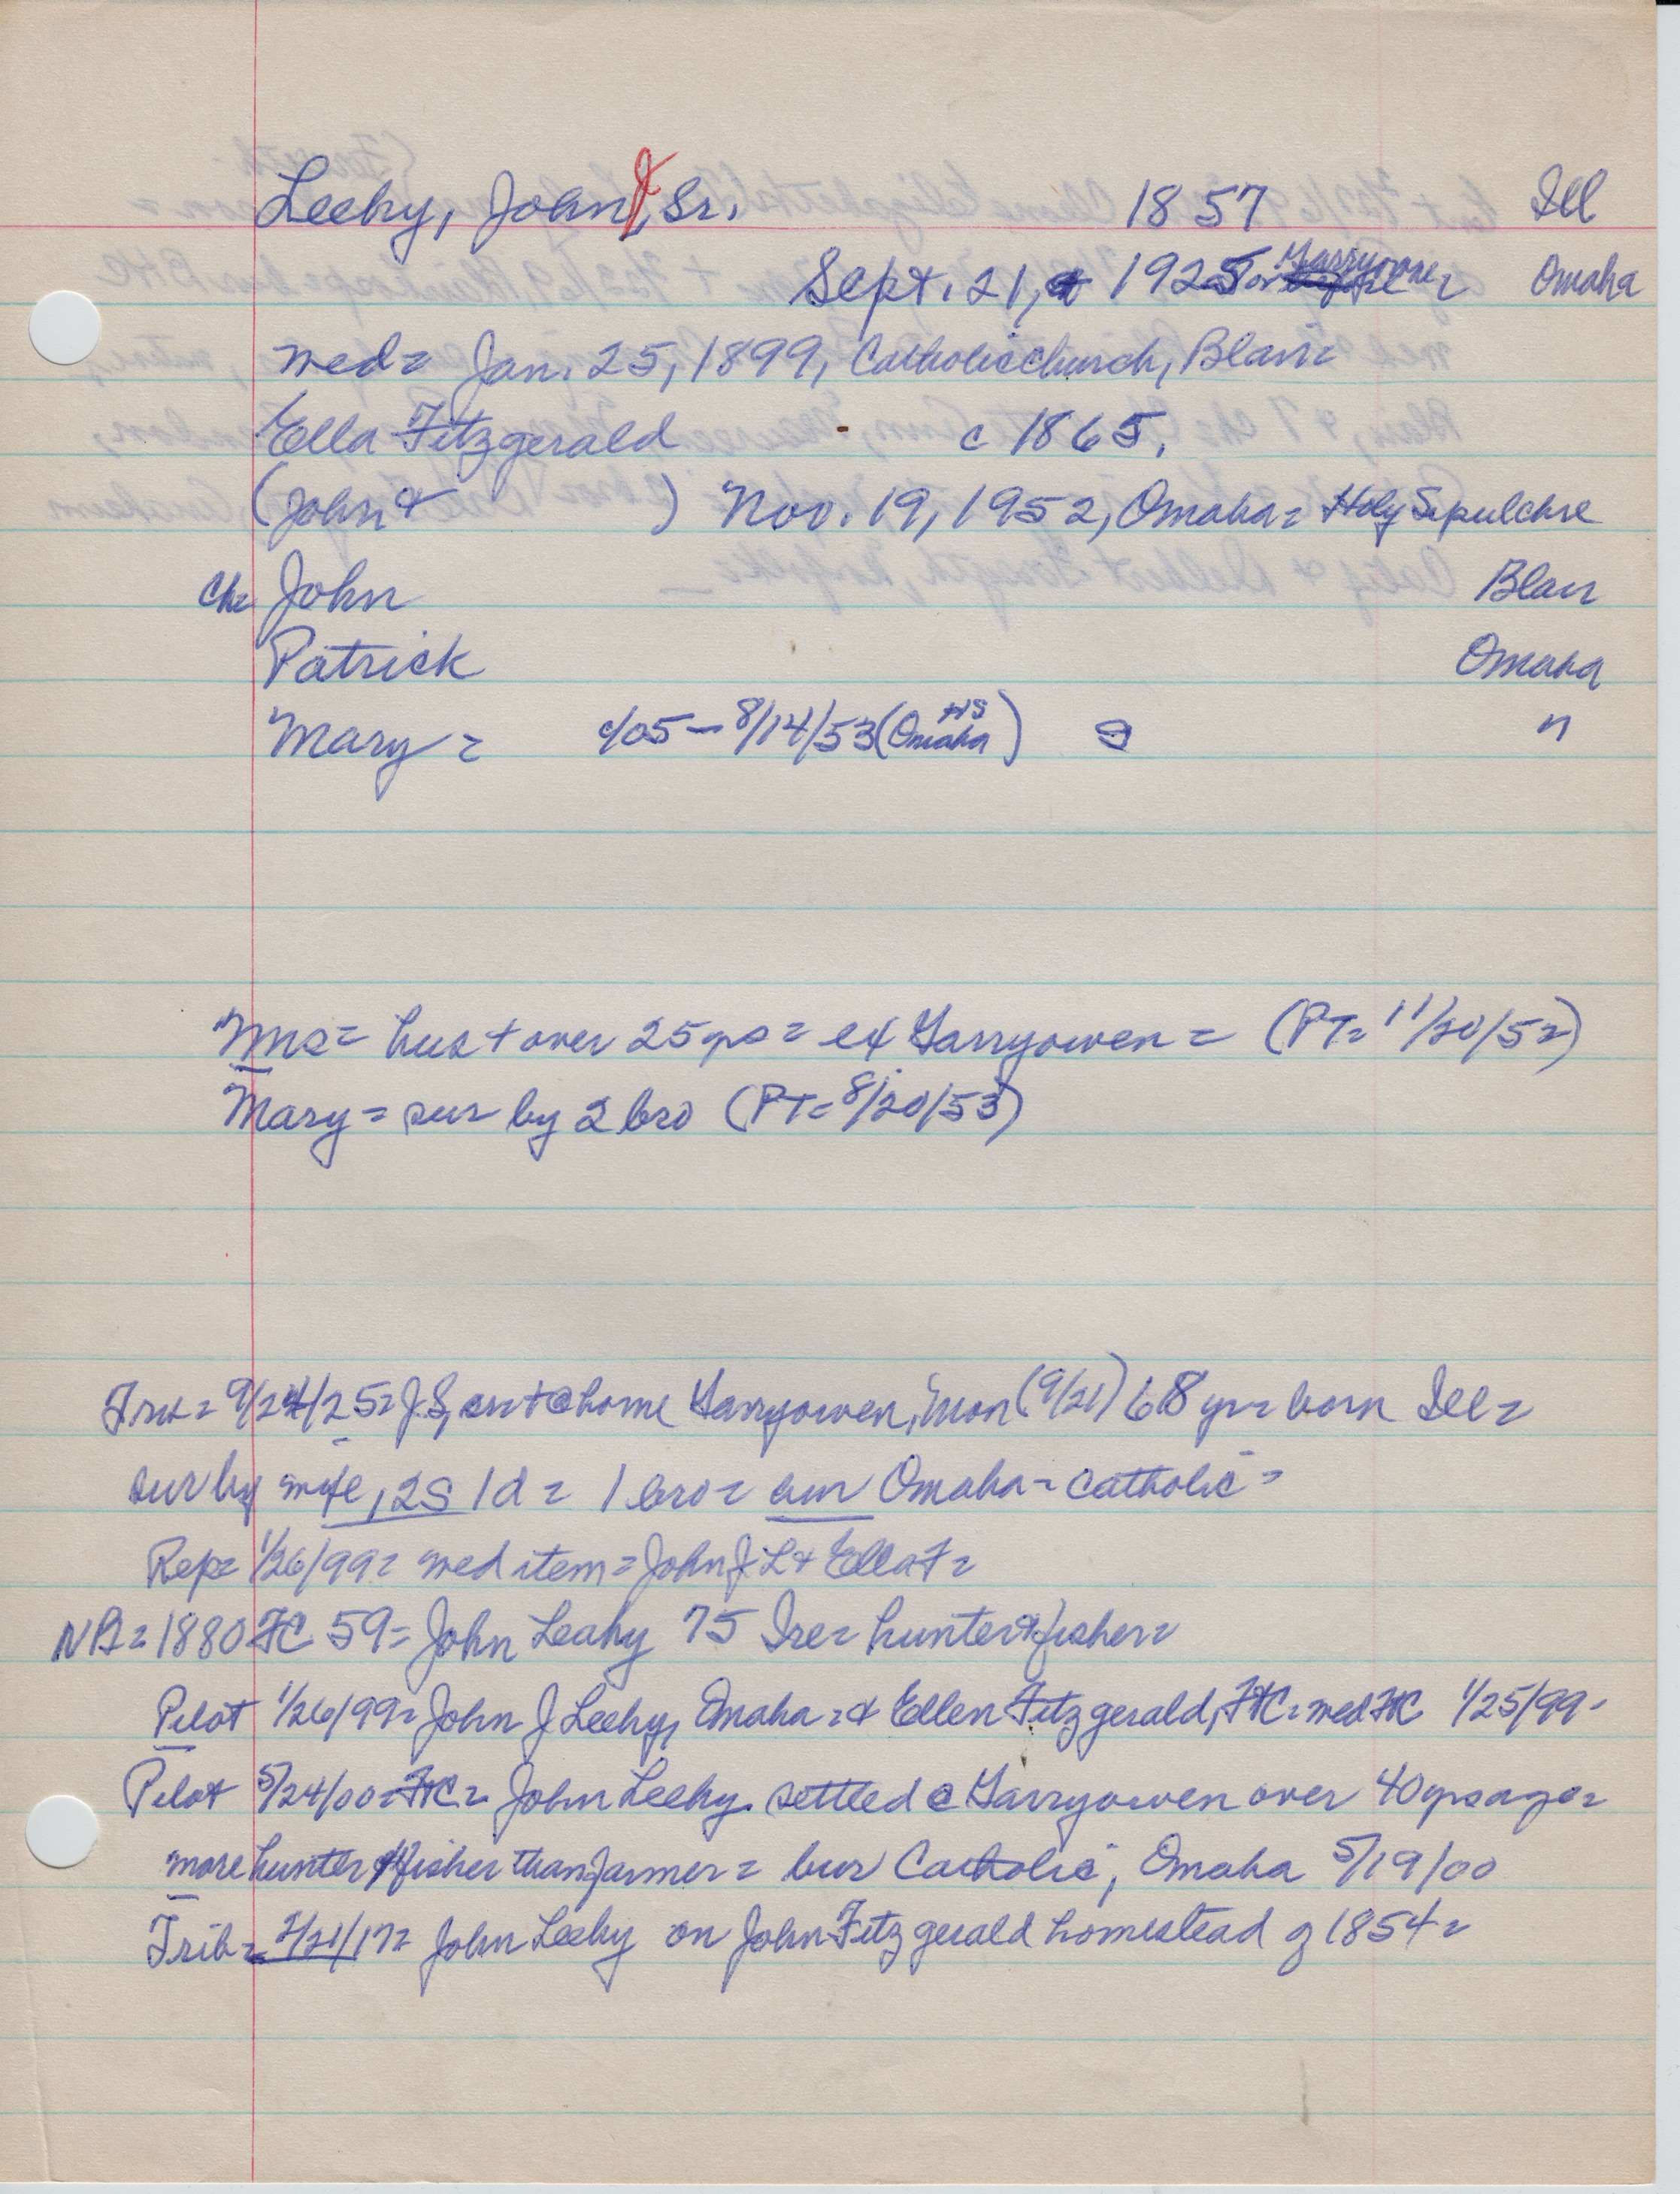 Leehy, John J, Sr. 1857 Ill
Sept. 21, 1925 Garryowen = Omaha
wed = Jan. 25, 1899, Catholic Church, Blair =
Ella Fitzgerald c 1865.
(John + ) Nov. 19, 1952, Omaha = Holy Sepulchre
Ch = John Blair
Patrick Omaha
Mary = c/05 – 8/14/53 (Omaha HS) "
Mrs = hus + over 25 yrs = ex Garryowen = (PT = 11/20/52)
Mary = sur by 2 bro (PT = 8/20/53)
9/24/25 = J S, home Garryowen, Mon (9/21) 68 yr = born Ill =
sur by wife, 2S 1d = 1 bro = bur Omaha = Catholic =
Rep = 1/26/99 = wed item = John J L + Ella F =
NB = 1880 FC 59 = John Leahy 75 Ire = hunter & fisher =
Pilot 1/26/99 = John J Leehy, Omaha = & Ellen Fitzgerald, FtC = wed FtC 1/25/99 -
Pilot 5/24/00 = FtC = John Leehy settled @ Garryowen over 40 yrs ago =
more hunter & fisher than farmer = bur Catholic, Omaha 5/19/00
Trib = /21/17 = John Leehy on John Fitzgerald homestead of 1854 =